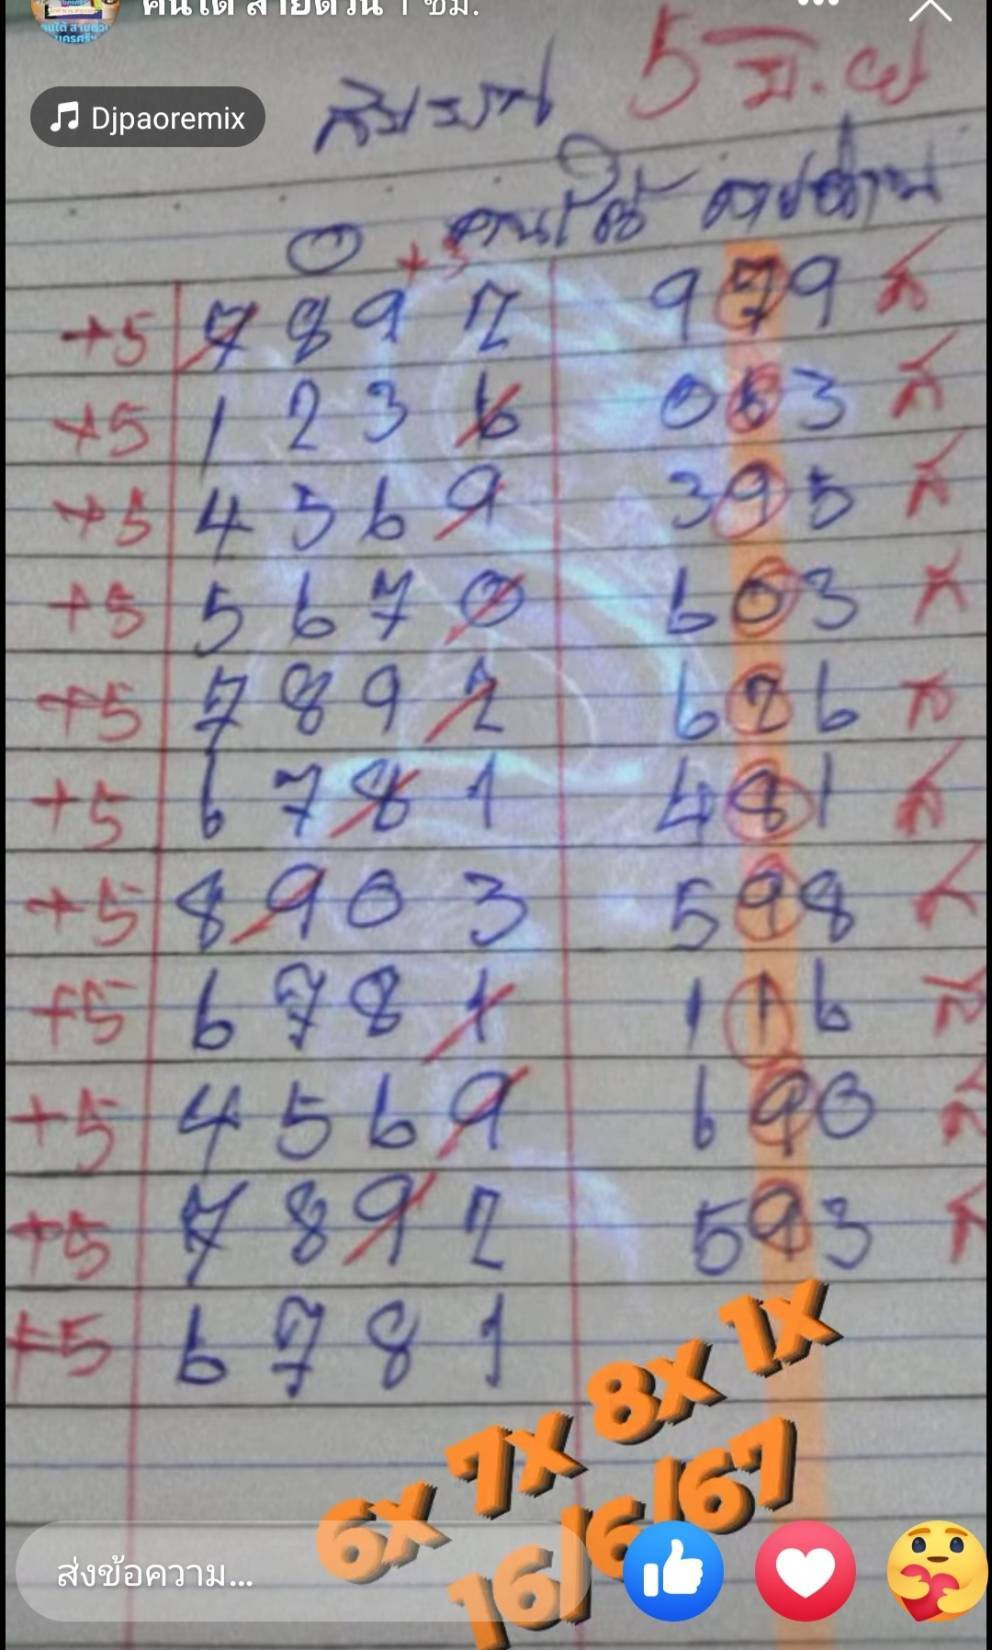 คนใต้ สายด่วน 1 ชม.
Djpaoremix
สิบบาท 5 มิ.ย
0 +5 คนใต้ สายด่วน
+5 7 8 9 2 979 ส
+5 1 2 3 6 063 ส
+5 4 5 6 9 395 ส
+5 5 6 7 0 603 ส
+5 7 8 9 2 626 ส
+5 6 7 8 1 481 ส
+5 8 9 0 3 598 ส
+5 6 7 8 1 116 ส
+5 4 5 6 9 690 ส
+5 7 8 9 2 593 ส
+5 6 7 8 1
6x 7x 8x 1x
16/6/67
ส่งข้อความ...